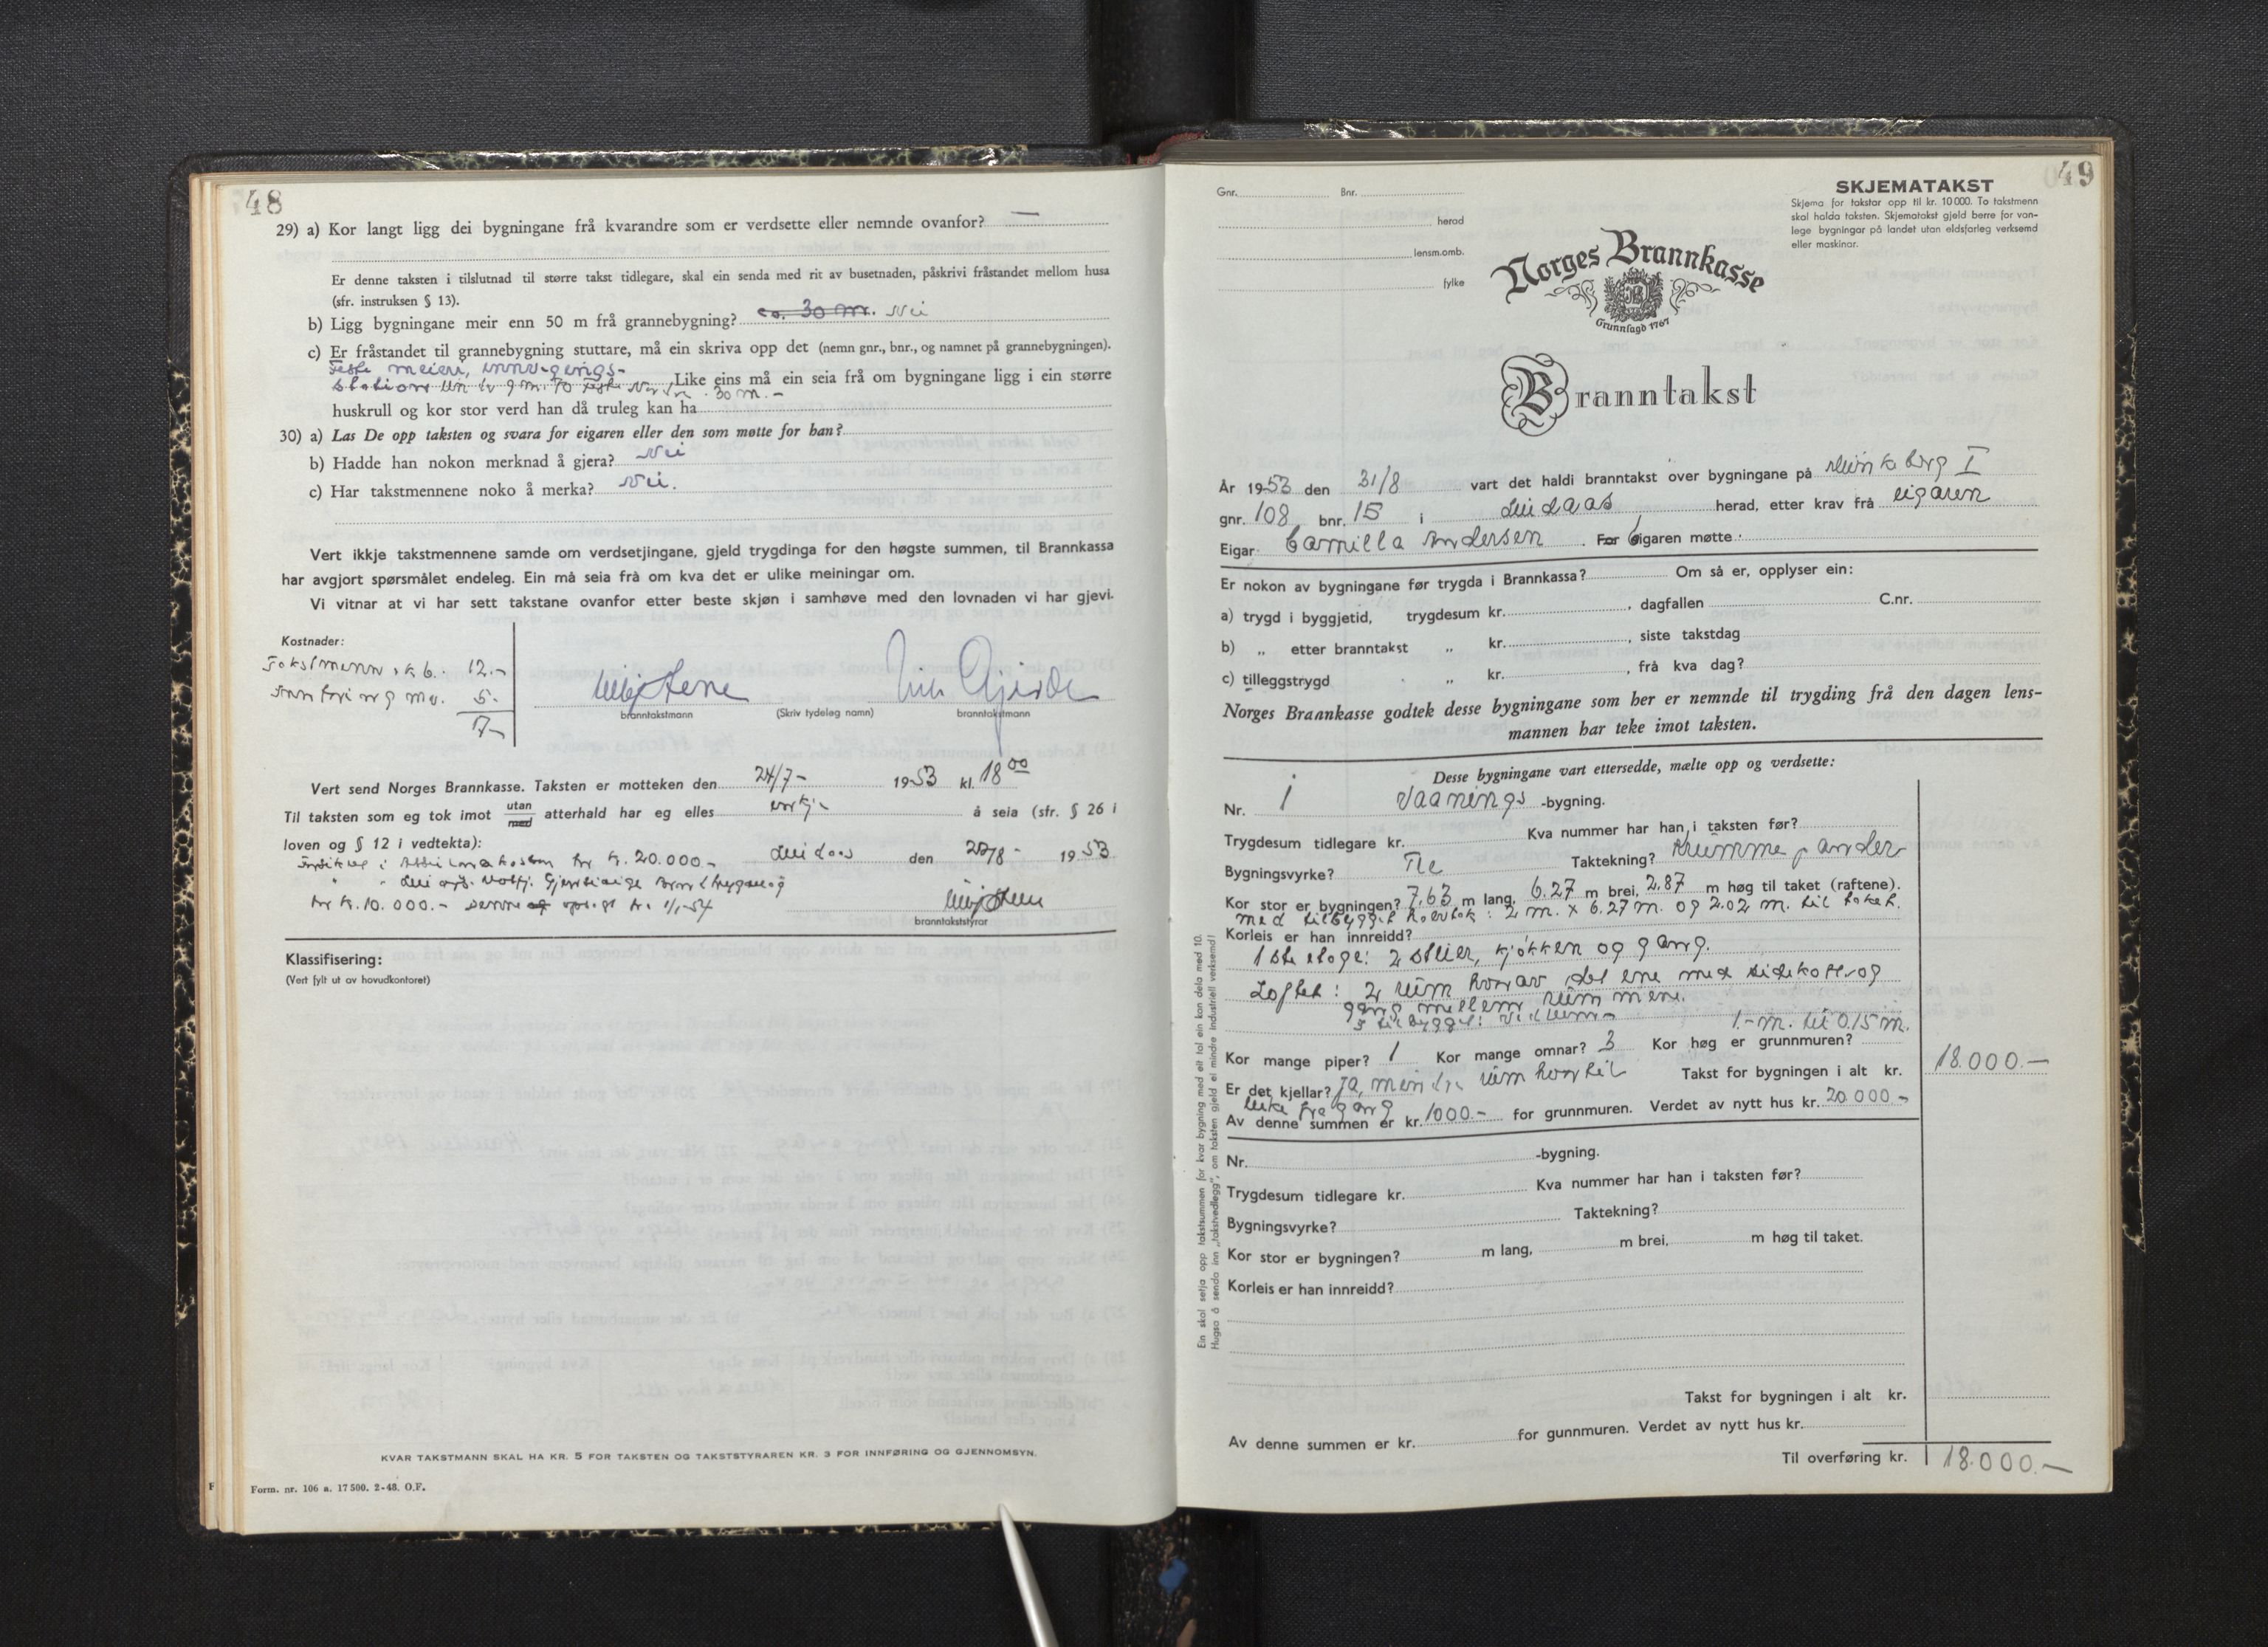 48
29) a) Kor langt ligg dei bygningane frå kvarandre som er verdsette eller nemnde ovanfor? —
Er denne taksten i tilslutnad til større takst tidlegare, skal ein senda med rit av busetnaden, påskrivi fråstandet mellom husa
(sfr. instruksen § 13).
b) Ligg bygningane meir enn 50 m frå grannebygning? ca. 30 m. Nei
c) Er fråstandet til grannebygning stuttare, må ein skriva opp det (nemn gnr., bnr., og namnet på grannebygningen).
meieri,
Like eins må ein seia frå om bygningane ligg i ein større
30 m. -
huskrull og kor stor verd han då truleg kan ha
30) a) Las De opp taksten og svara for eigaren eller den som møtte for han?
b) Hadde han nokon merknad å gjera? Nei
c) Har takstmennene noko å merka? Nei.
Vert ikkje takstmennene samde om verdsetjingane, gjeld trygdinga for den høgste summen, til Brannkassa
har avgjort spørsmålet endeleg. Ein må seia frå om kva det er ulike meiningar om.
Vi vitnar at vi har sett takstane ovanfor etter beste skjøn i samhøve med den lovnaden vi har gjevi.
Kostnader:
12.-
5.-
17.-
branntakstmann (Skriv tydeleg namn) branntakstmann
Vert send Norges Brannkasse. Taksten er motteken den 24/7- 1953 kl. 18 00
Til taksten som eg tok imot utan/med atterhald har eg elles å seia (sfr. § 26 i
loven og § 12 i vedtekta):
kr. 20.000.- den 1953
kr. 10.000.- 1/1-54
branntakststyrar
Klassifisering:
(Vert fylt ut av hovudkontoret)
KVAR TAKSTMANN SKAL HA KR. 5 FOR TAKSTEN OG TAKSTSTYRAREN KR. 3 FOR INNFØRING OG GJENNOMSYN.
Form. nr. 106 a. 17500. 2-48. O.F.
49
Gnr. Bnr.
herad
lensm.omb.
fylke
SKJEMATAKST
Skjema for takstar opp til kr. 10 000. To takstmenn
skal halda taksten. Skjematakst gjeld berre for van-
lege bygningar på landet utan eldsfarleg verksemd
eller maskinar.
Norges Brannkasse
Grunnlagd 1767
Branntakst
År 1953 den 31/8 vart det haldi branntakst over bygningane på
gnr. 108 bnr. 15 i herad, etter krav frå eigaren
Eigar Camilla Andersen. For Eigaren møtte.
Er nokon av bygningane før trygda i Brannkassa? Om så er, opplyser ein:
a) trygd i byggjetid, trygdesum kr. , dagfallen C.nr.
b) „ etter branntakst „ kr. , siste takstdag
c) tilleggstrygd „ kr. , frå kva dag?
Norges Brannkasse godtek desse bygningane som her er nemnde til trygding frå den dagen lens-
mannen har teke imot taksten.
Desse bygningane vart ettersedde, mælte opp og verdsette:
Nr. 1 Vaanings -bygning.
Trygdesum tidlegare kr. Kva nummer har han i taksten før?
Bygningsvyrke? Tre Taktekning? Krumme panner
Kor stor er bygningen? 7.63 m lang, 6.27 m brei, 2.87 m høg til taket (raftene).
med tilbygget : 2 m. x 6.27 m. og 2.02 m. til taket.
Korleis er han innreidd?
1ste etage: 2 stuer, kjøkken og gang.
Loftet: 2 rum hvorav det ene med sidekott og
gang mellem rummene.
I tilbygget:
1.- m. til 0.15 m.
Kor mange piper? 1 Kor mange omnar? 3 Kor høg er grunnmuren?
Er det kjellar? Ja, mindre rum hvortil Takst for bygningen i alt kr. 18.000.-
luke fra gang
Av denne summen er kr. 1000.- for grunnmuren. Verdet av nytt hus kr. 20.000.-
Nr. -bygning.
Trygdesum tidlegare kr. Kva nummer har han i taksten før?
Bygningsvyrke? Taktekning?
Kor stor er bygningen? m lang, m brei, m høg til taket.
Korleis er han innreidd?
Takst for bygningen i alt kr.
Av denne summen er kr. for gunnmuren. Verdet av nytt hus kr.
Til overføring kr. 18.000.-
Ein skal setja opp takstsummen for kvar bygning med eit tal ein kan dela med 10.
Hugso å senda inn „takstvedlegg", om taksten gjeld ei mindre industriell verksemd!